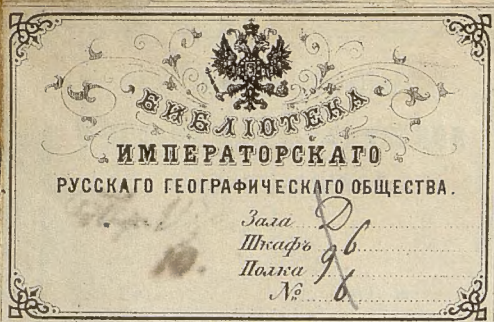 БИБЛІОТЕКА
ИМПЕРАТОРСКАГО
РУССКАГО ГЕОГРАФИЧЕСКАГО ОБЩЕСТВА.
Зала Д
Шкафъ 6
Полка 9
№ 6
10.